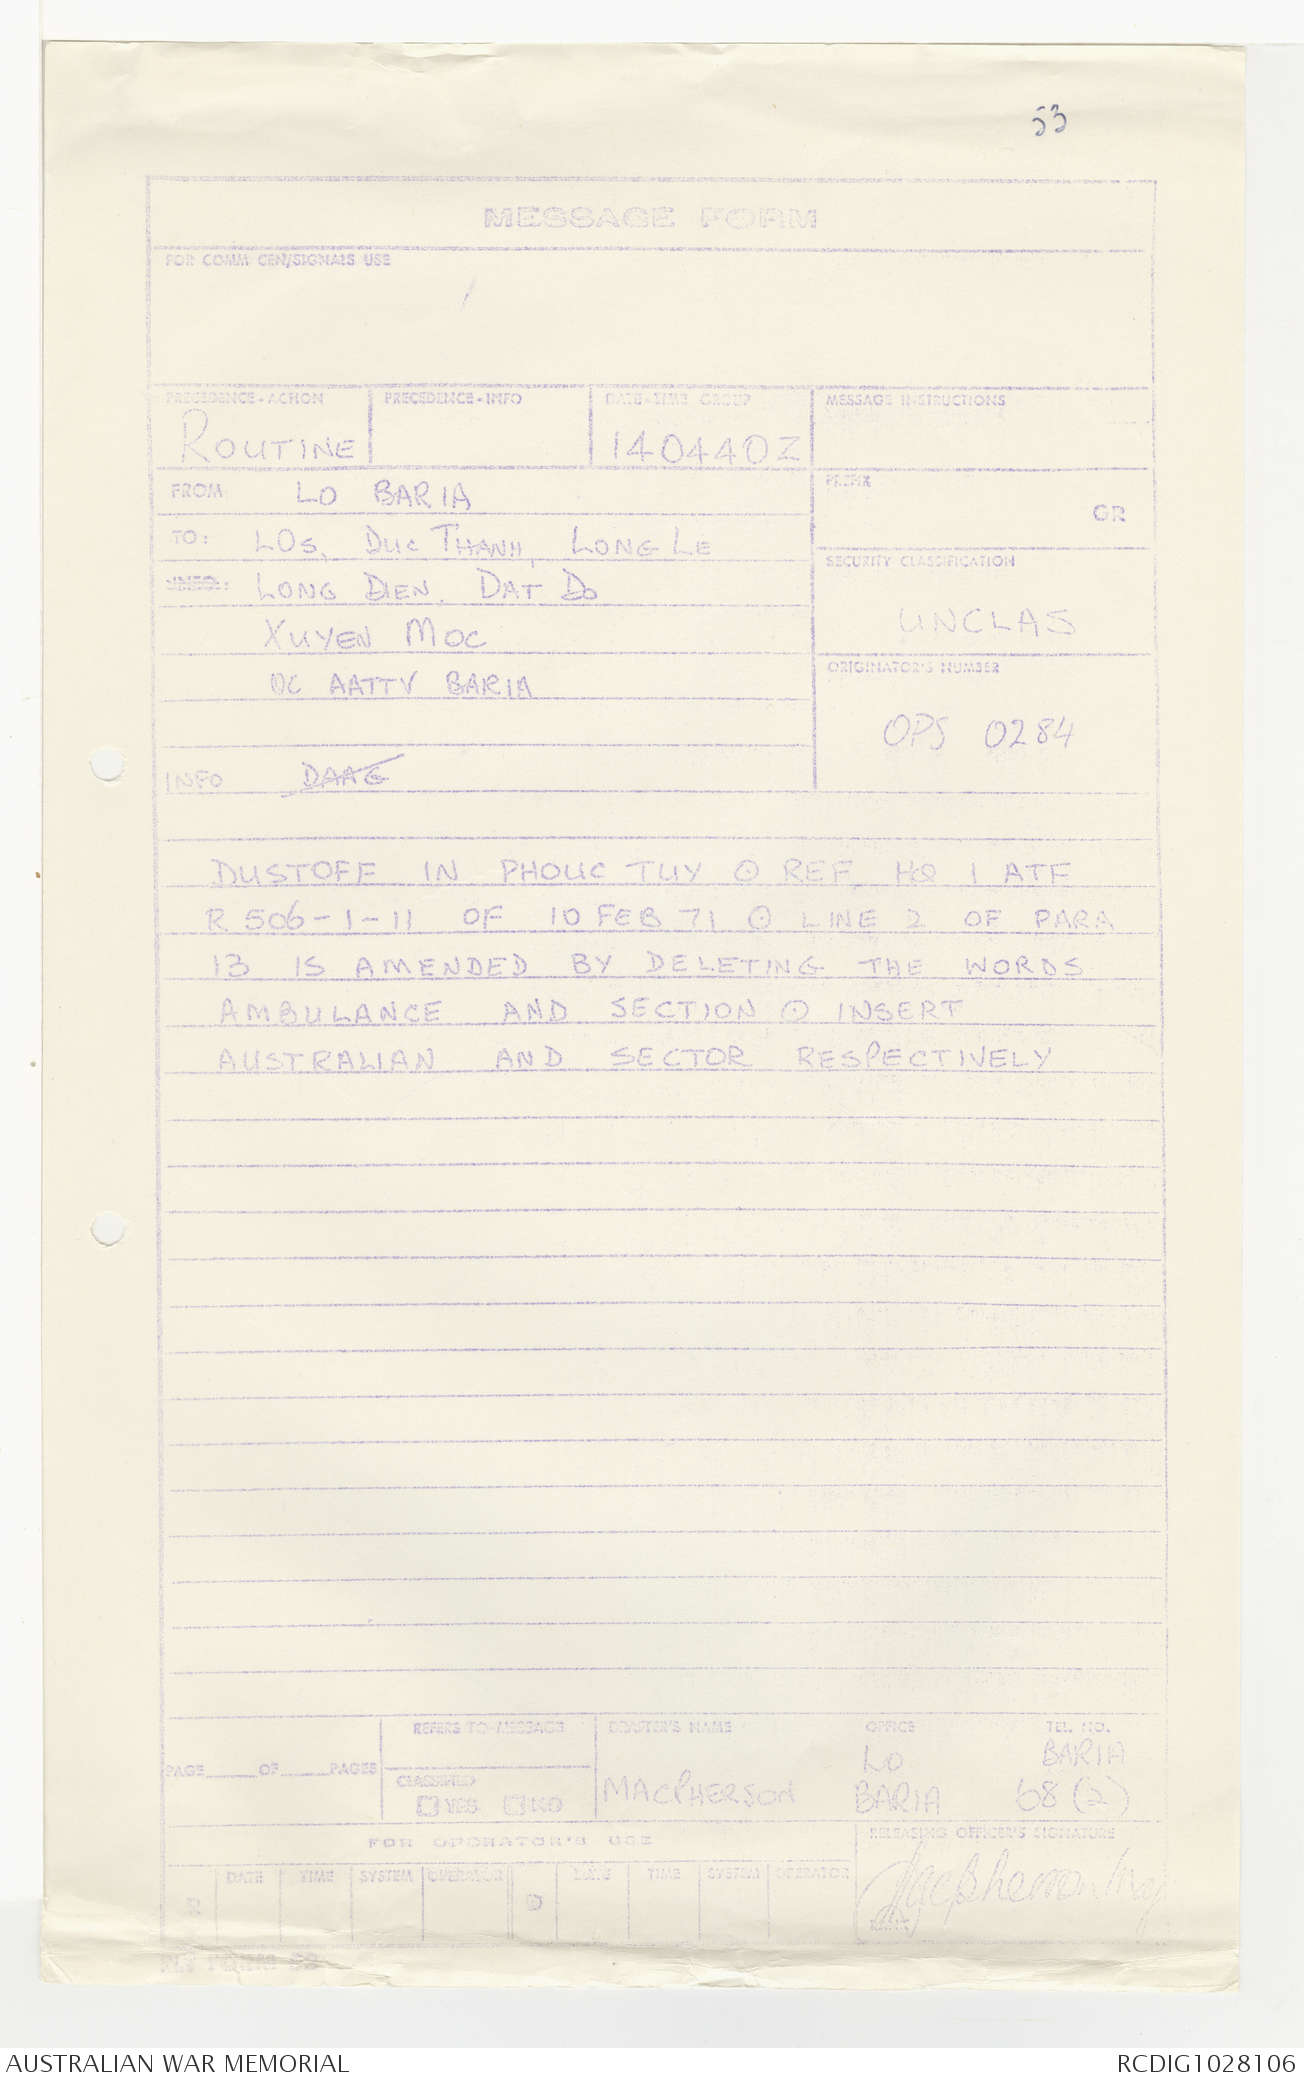 53
MESSAGE FORM
FOR COMM CEN/SIGNALS USE
PRECEDENCE-ACTION PRECEDENCE-INFO DATE-TIME GROUP MESSAGE INSTRUCTIONS
ROUTINE 140440Z
FROM LO BARIA
PREFIX
OR
TO: LOs, DUC THANH, LONG LE
SECURITY CLASSIFICATION
INFO: LONG DIEN, DAT DO
UNCLAS
XUYEN MOC
ORIGINATOR'S NUMBER
OC AATTV BARIA
OPS 0284
INFO DAAG
DUSTOFF IN PHOUC TUY ⊙ REF, HQ 1 ATF
R 506-1-11 OF 10 FEB 71 ⊙ LINE 2 OF PARA
13 IS AMENDED BY DELETING THE WORDS
AMBULANCE AND SECTION ⊙ INSERT
AUSTRALIAN AND SECTOR RESPECTIVELY
REFERS TO MESSAGE DRAFTER'S NAME OFFICE TEL. NO.
PAGE OF PAGES
LO BARIA
CLASSIFIED
YES NO
MACPHERSON BARIA 68 (2)
FOR OPERATOR'S USE
RELEASING OFFICER'S SIGNATURE
DATE TIME SYSTEM OPERATOR DATE TIME SYSTEM OPERATOR
R D
AUSTRALIAN WAR MEMORIAL RCDIG1028106